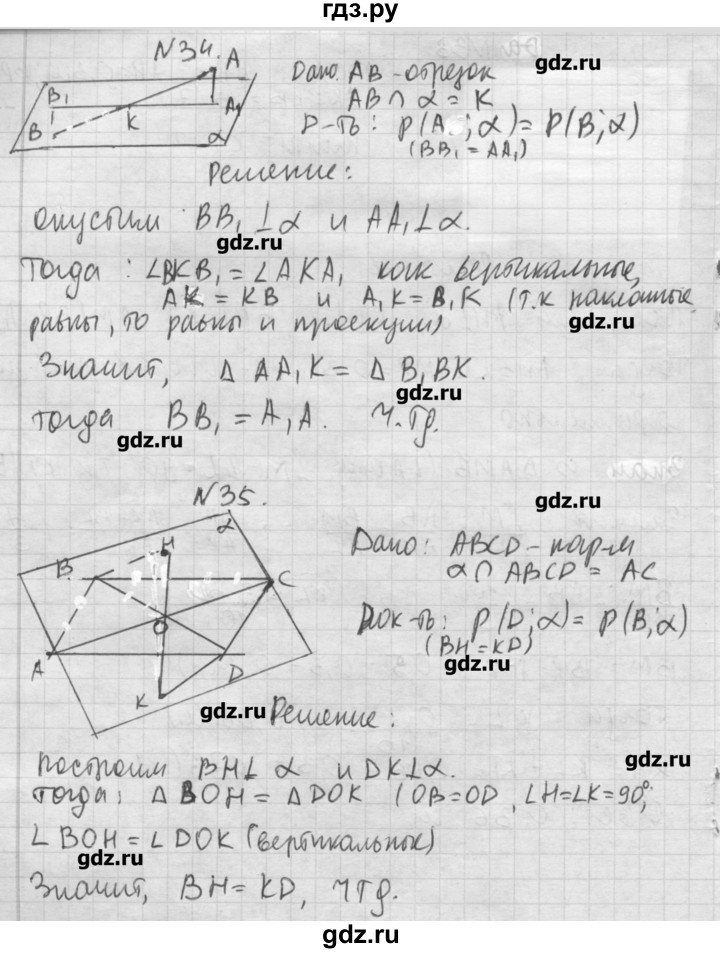 гдз.ру
N34.
Дано: AB - отрезок
AB ∩ α = K
Д-ть: ρ(A; α) = ρ(B; α)
(BB₁ = AA₁)
A
B₁
A₁
B
K
α
gdz.ru
Решение:
опустим BB₁ ⊥ α и AA₁ ⊥ α.
gdz.ru
Тогда: ∠BKB₁ = ∠AKA₁ как вертикальные,
AK = KB и A₁K = B₁K (т.к наклонные
равны, то равны и проекции)
gdz.ru
Значит, Δ AA₁K = Δ B₁BK.
gdz.ru
тогда BB₁ = A₁A. Ч.тд.
gdz.ru
N35.
gdz.ru
Дано: ABCD - пар-м
α ∩ ABCD = AC
Док-ть: ρ(D; α) = ρ(B; α)
(BH = KD)
gdz.ru
H
α
B
C
O
A
D
K
gdz.ru
Решение:
построим BH ⊥ α и DK ⊥ α.
gdz.ru
тогда: Δ BOH = Δ DOK (OB = OD, ∠H = ∠K = 90°,
∠BOH = ∠DOK (вертикальных)
gdz.ru
Значит, BH = KD, чтд.
gdz.ru
gdz.ru